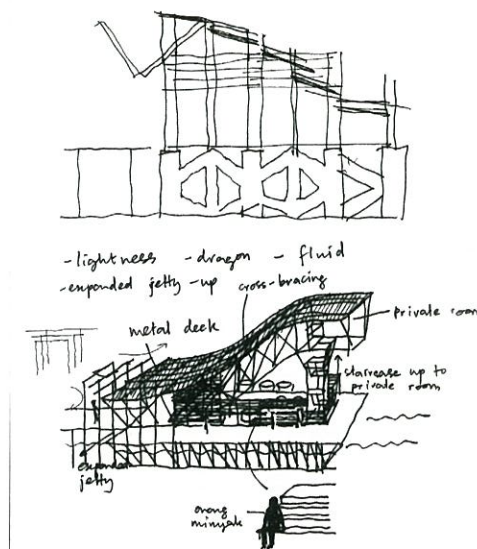 -lightness -dragon - fluid
-expanded jetty -up
cross-bracing
metal deck
private room
staircase up to
private room
expanded
jetty
orang
minyak